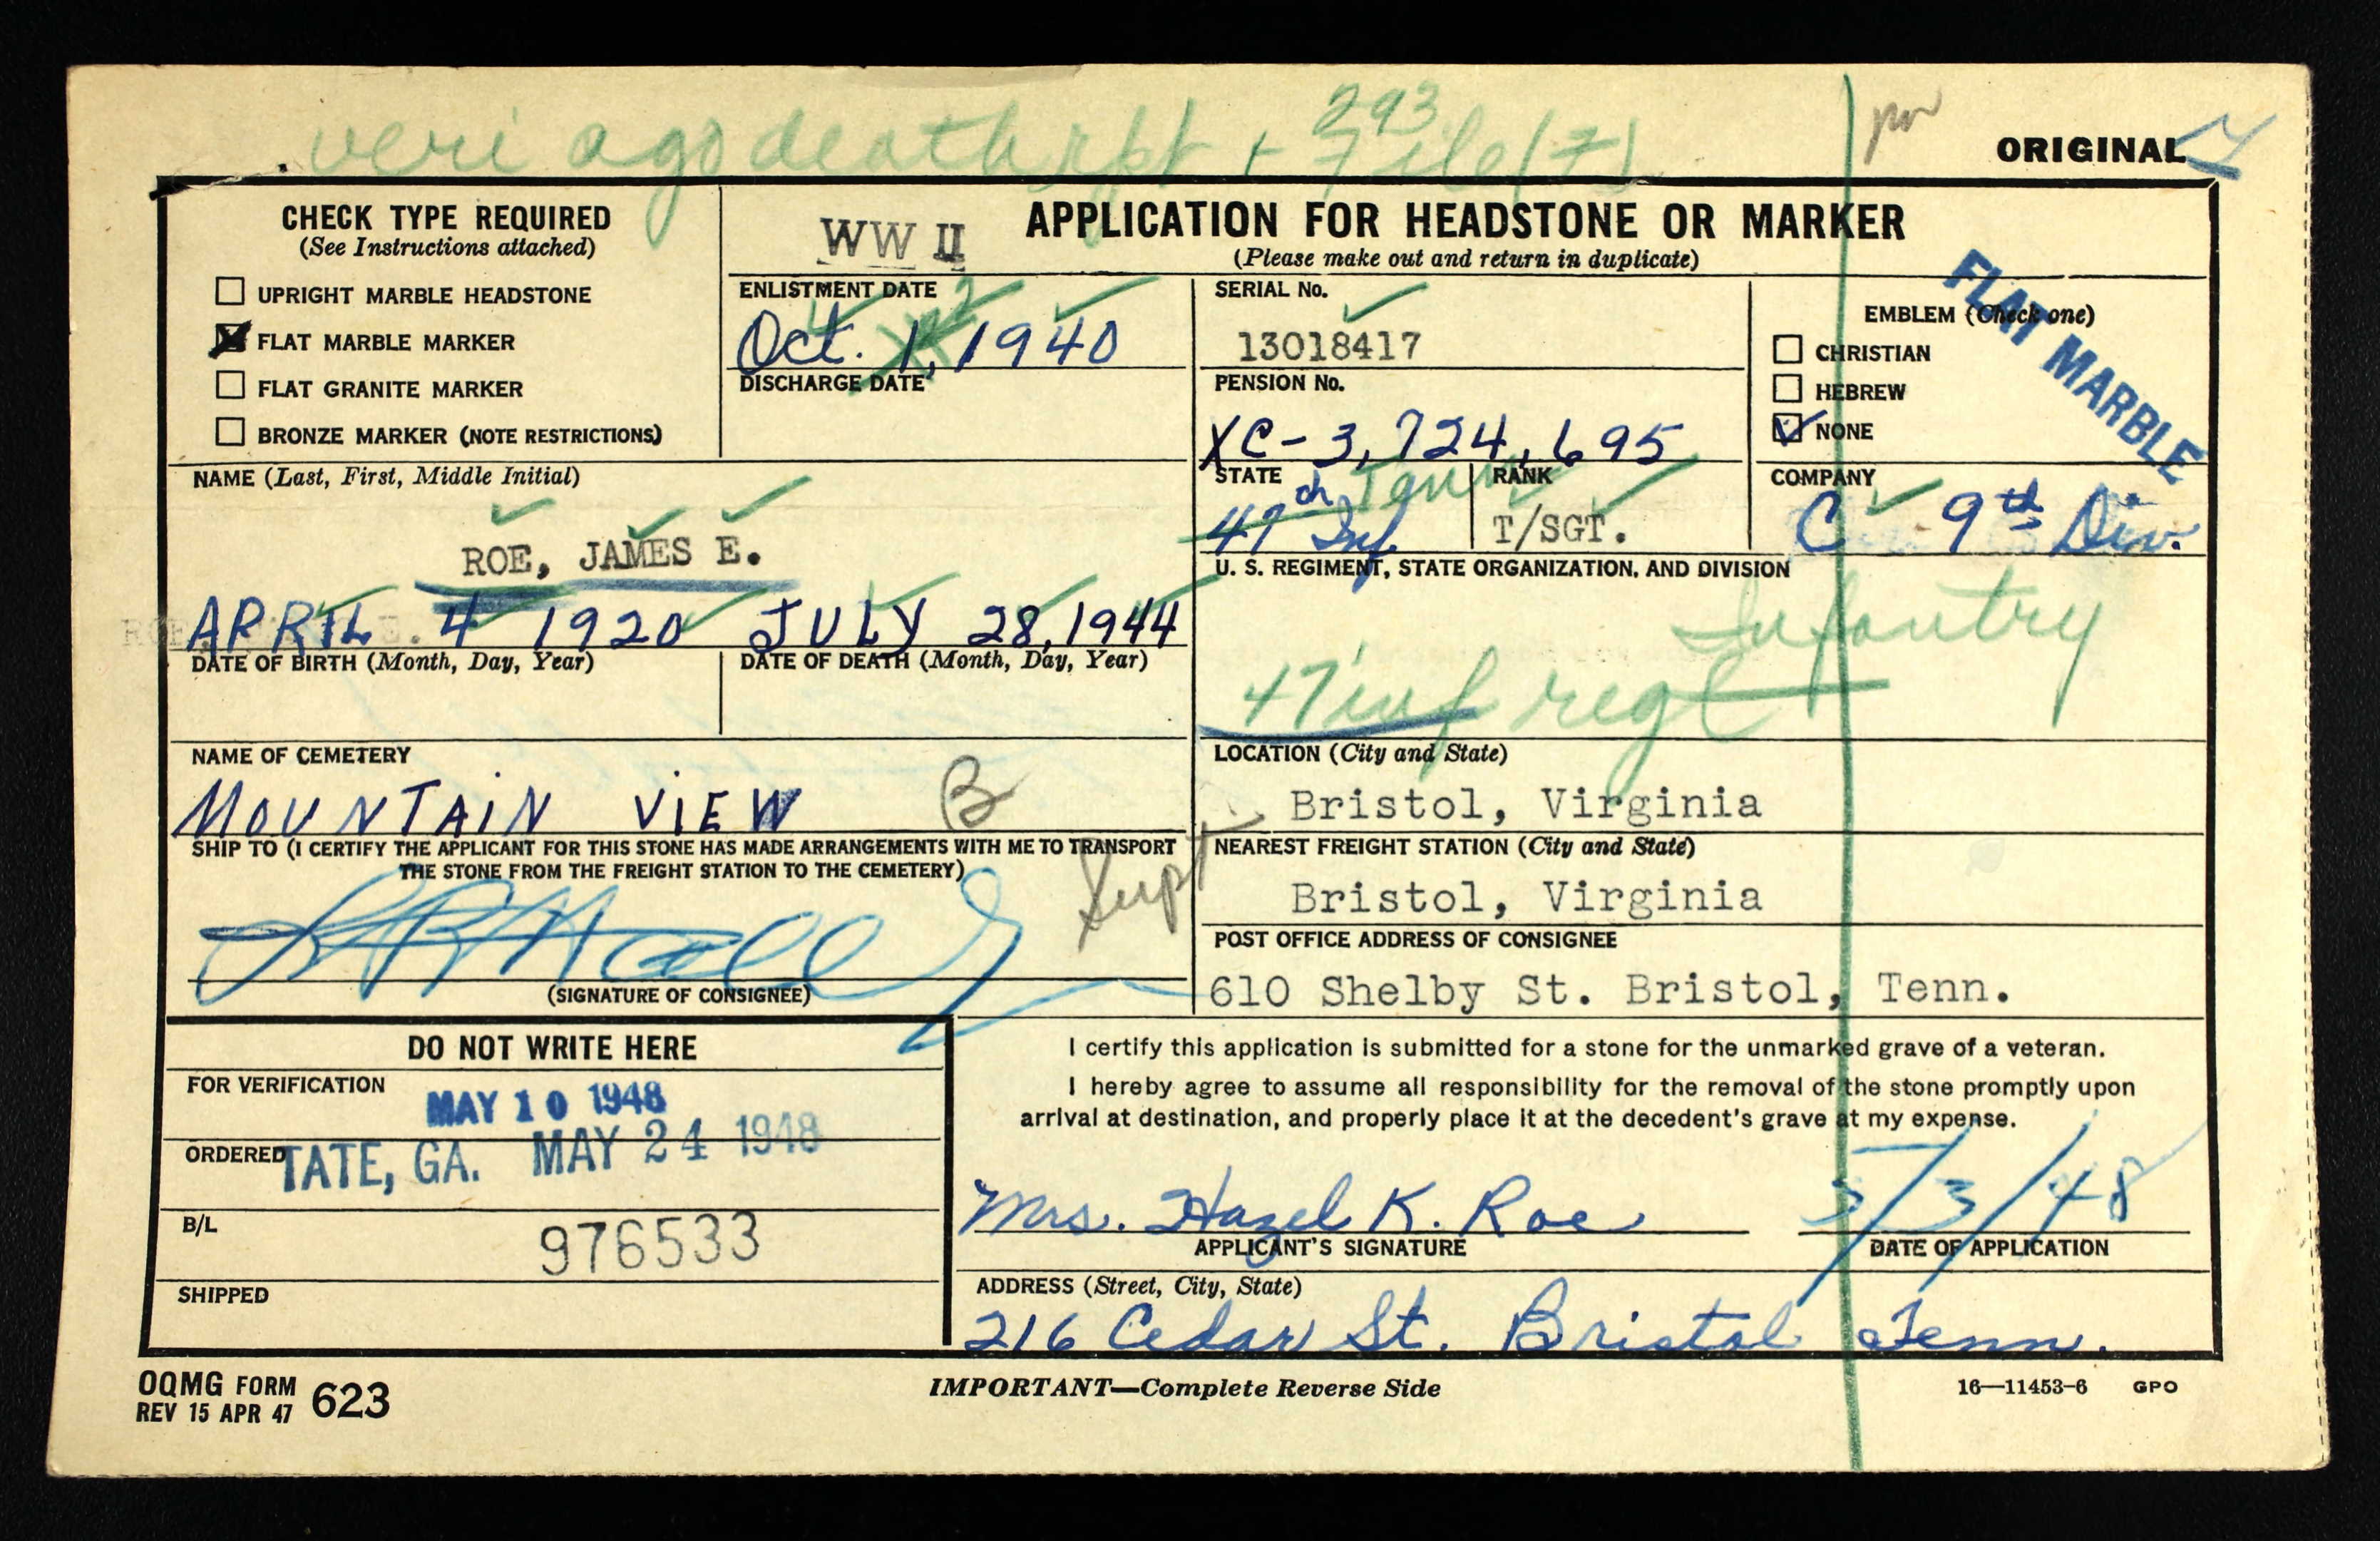 veri ago death rpt + 293 File (7)
ORIGINAL
CHECK TYPE REQUIRED
(See Instructions attached)
UPRIGHT MARBLE HEADSTONE
FLAT MARBLE MARKER
FLAT GRANITE MARKER
BRONZE MARKER (NOTE RESTRICTIONS)
WW II
APPLICATION FOR HEADSTONE OR MARKER
(Please make out and return in duplicate)
ENLISTMENT DATE
2
Oct. 1, 1940
DISCHARGE DATE
SERIAL No.
13018417
PENSION No.
XC-3,724,695
EMBLEM (Check one)
CHRISTIAN
HEBREW
NONE
FLAT MARBLE
NAME (Last, First, Middle Initial)
ROE, JAMES E.
STATE
Tenn
47th Inf.
RANK
T/SGT.
COMPANY
C 9th Div.
U. S. REGIMENT, STATE ORGANIZATION, AND DIVISION
Infantry
47 inf regt
APRIL 4 1920
DATE OF BIRTH (Month, Day, Year)
JULY 28, 1944
DATE OF DEATH (Month, Day, Year)
NAME OF CEMETERY
MOUNTAIN VIEW B
LOCATION (City and State)
Bristol, Virginia
SHIP TO (I CERTIFY THE APPLICANT FOR THIS STONE HAS MADE ARRANGEMENTS WITH ME TO TRANSPORT
THE STONE FROM THE FREIGHT STATION TO THE CEMETERY)
Supt
(SIGNATURE OF CONSIGNEE)
NEAREST FREIGHT STATION (City and State)
Bristol, Virginia
POST OFFICE ADDRESS OF CONSIGNEE
610 Shelby St. Bristol, Tenn.
DO NOT WRITE HERE
FOR VERIFICATION
MAY 10 1948
ORDERED
TATE, GA. MAY 24 1948
B/L
976533
SHIPPED
I certify this application is submitted for a stone for the unmarked grave of a veteran.
I hereby agree to assume all responsibility for the removal of the stone promptly upon
arrival at destination, and properly place it at the decedent's grave at my expense.
Mrs. Hazel K. Roe
5/3/48
APPLICANT'S SIGNATURE
DATE OF APPLICATION
ADDRESS (Street, City, State)
216 Cedar St. Bristol Tenn.
OQMG FORM 623
REV 15 APR 47
IMPORTANT—Complete Reverse Side
16—11453-6 GPO